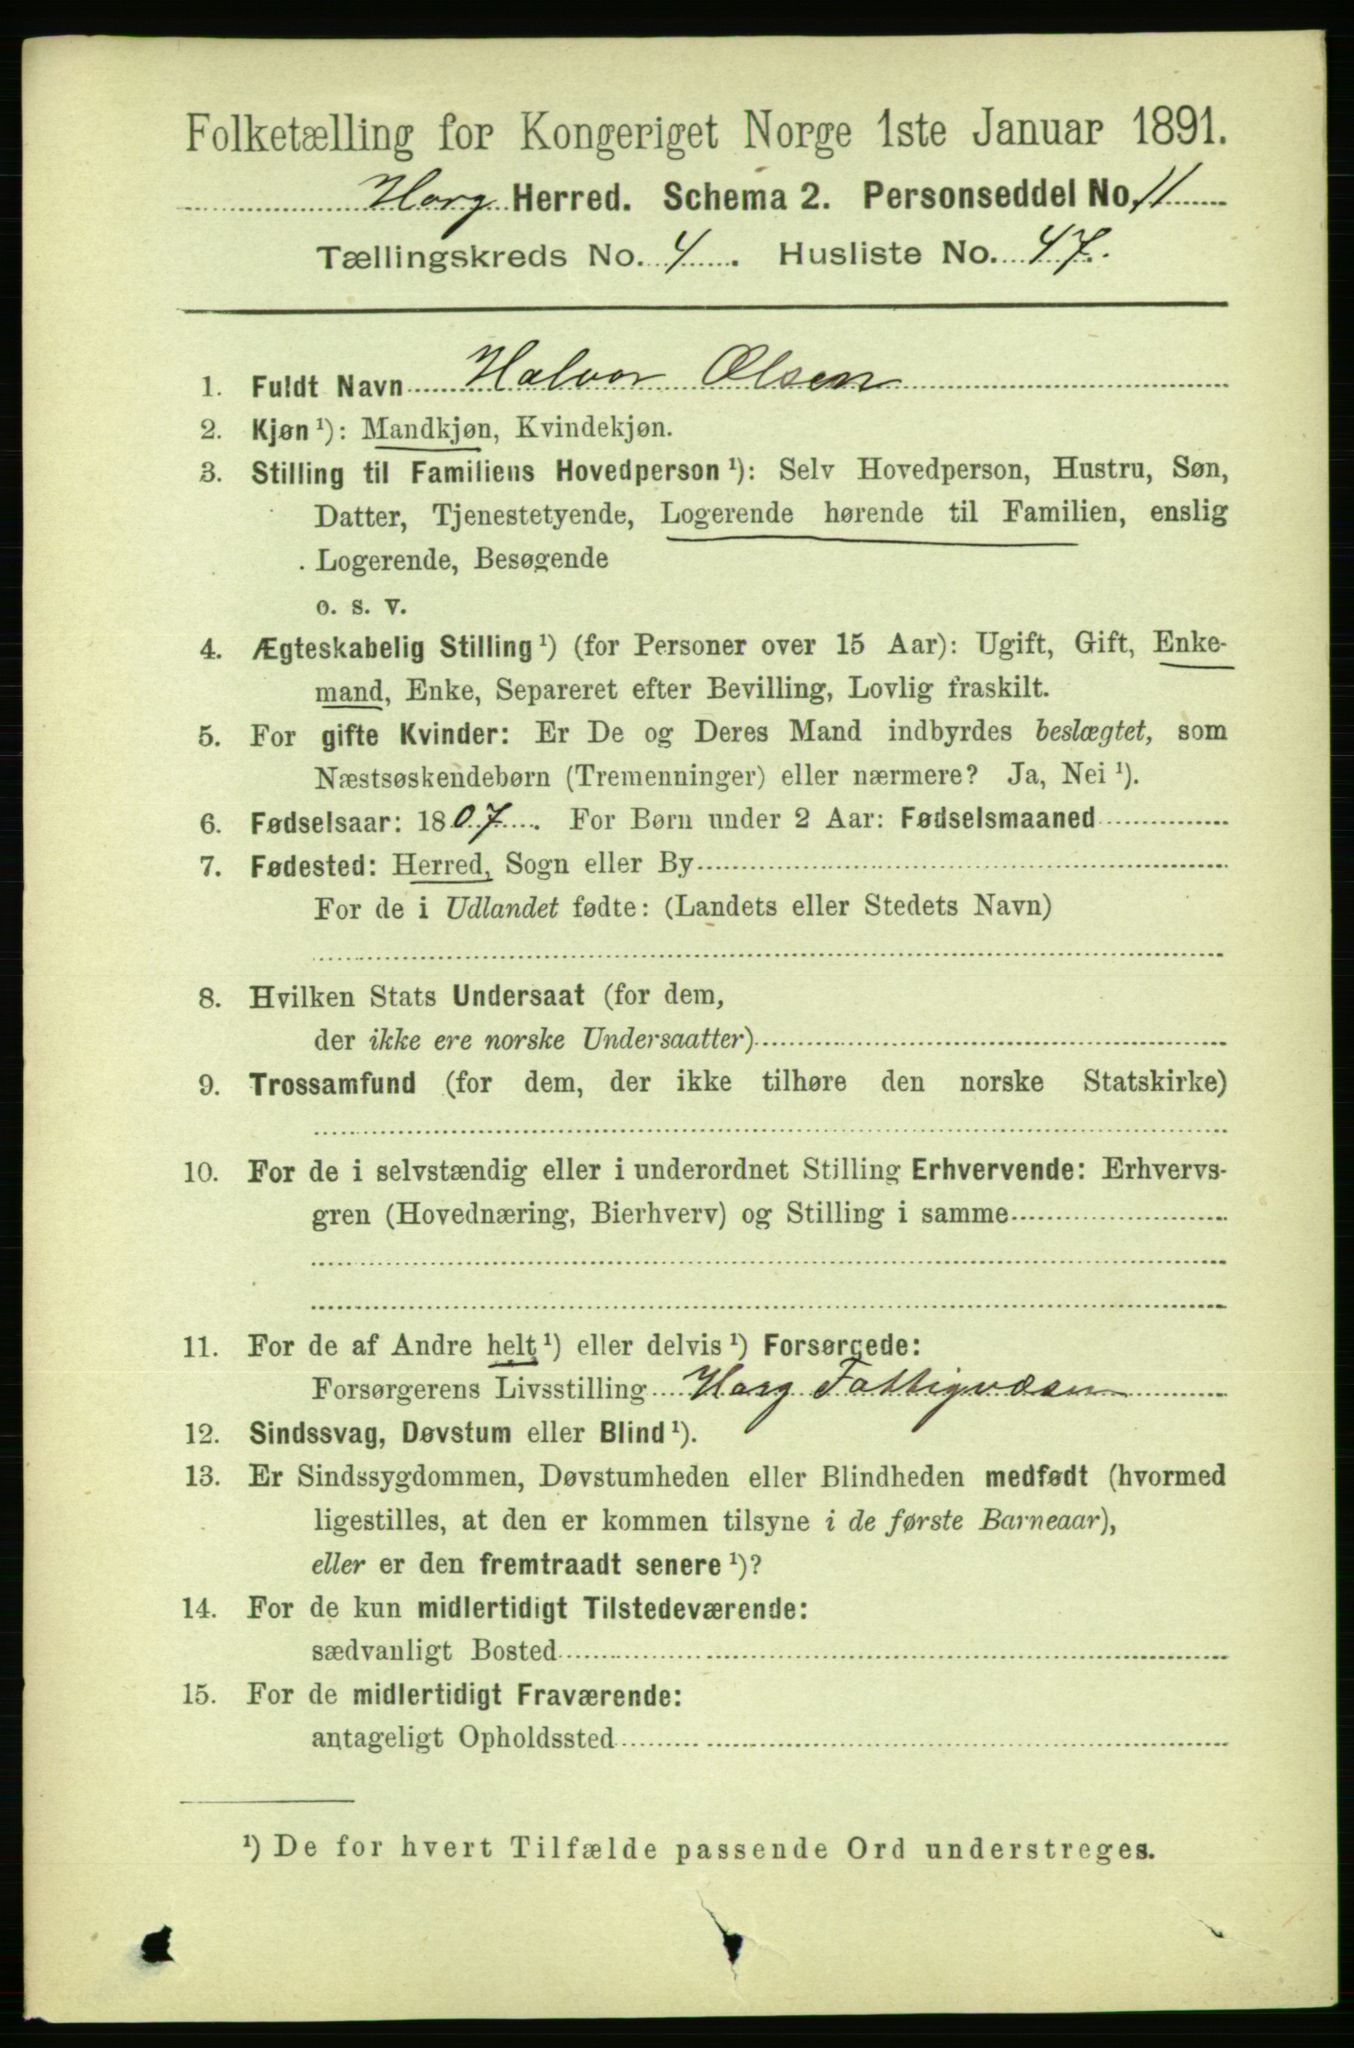 Folketælling for Kongeriget Norge 1ste Januar 1891.
Horg Herred. Schema 2. Personseddel No. 11
Tællingskreds No. 4. Husliste No. 47.
1. Fuldt Navn Halvor Olsen
2. Kjøn ¹): Mandkjøn, Kvindekjøn.
3. Stilling til Familiens Hovedperson ¹): Selv Hovedperson, Hustru, Søn,
Datter, Tjenestetyende, Logerende hørende til Familien, enslig
Logerende, Besøgende
o. s. v.
4. Ægteskabelig Stilling ¹) (for Personer over 15 Aar): Ugift, Gift, Enke-
mand, Enke, Separeret efter Bevilling, Lovlig fraskilt.
5. For gifte Kvinder: Er De og Deres Mand indbyrdes beslægtet, som
Næstsøskendebørn (Tremenninger) eller nærmere? Ja, Nei ¹).
6. Fødselsaar: 1807. For Børn under 2 Aar: Fødselsmaaned
7. Fødested: Herred, Sogn eller By
For de i Udlandet fødte: (Landets eller Stedets Navn)
8. Hvilken Stats Undersaat (for dem,
der ikke ere norske Undersaatter)
9. Trossamfund (for dem, der ikke tilhøre den norske Statskirke)
10. For de i selvstændig eller i underordnet Stilling Erhvervende: Erhvervs-
gren (Hovednæring, Bierhverv) og Stilling i samme
11. For de af Andre helt ¹) eller delvis ¹) Forsørgede:
Forsørgerens Livsstilling Horg Fattigvæsen
12. Sindssvag, Døvstum eller Blind ¹).
13. Er Sindssygdommen, Døvstumheden eller Blindheden medfødt (hvormed
ligestilles, at den er kommen tilsyne i de første Barneaar),
eller er den fremtraadt senere ¹)?
14. For de kun midlertidigt Tilstedeværende:
sædvanligt Bosted
15. For de midlertidigt Fraværende:
antageligt Opholdssted
¹) De for hvert Tilfælde passende Ord understreges.